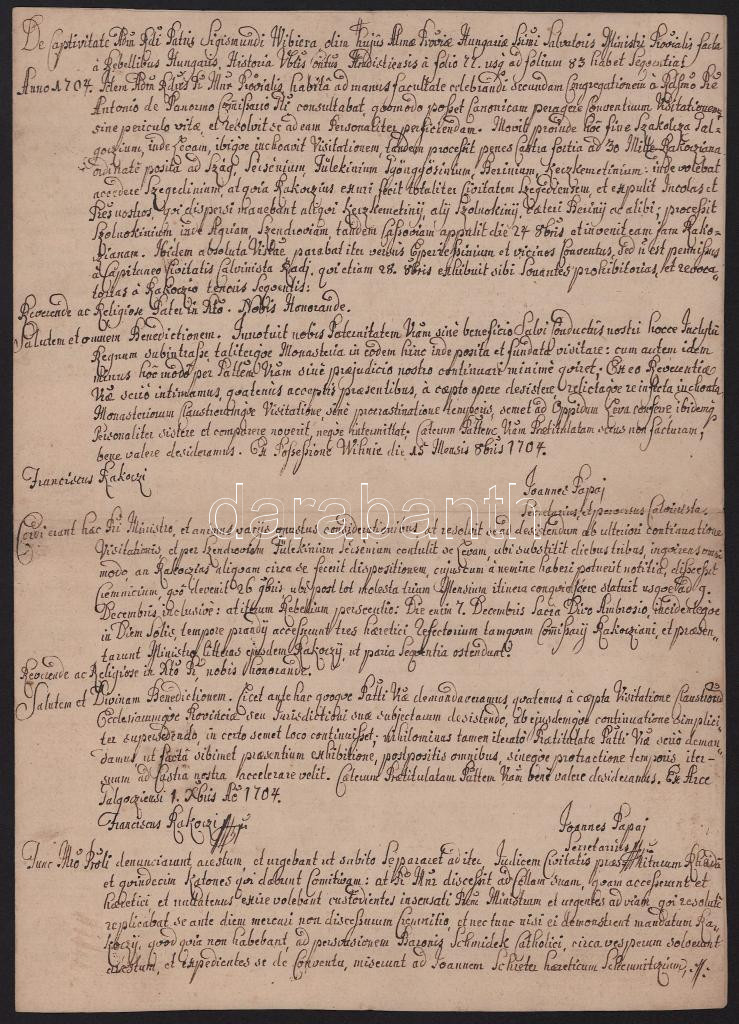 De Captivitate Adm Rdi Patris Sigismundi Wibiera, olim hujus Almæ Proviæ Hungariæ Ssmi Salvatoris Ministri Provialis facta
à Rebellibus Hungaris, Historia à folio 77. usq ad folium 83 habet Seqventia
Anno 1704. Idem Adm Rdus Pr Mnr Provialis, habitâ ad manus facultate celebrandi secundam Congregationem à Rssmo Pre
Antonio de Panormo Comissario consultabat qvomodo posset Canonicam peragere Conventuum Visitationem
sine periculo vitæ, et resolvit se ad eam Personaliter perficiendam. Movit proinde hoc fine Szakolcza
goczium, inde Levam, ibiqve inchoavit Visitationem, tandem processit penes Castra fortia ad 30 Mille Rakocziana
ordinatè posita ad Szag, Sersenjum, Fülekinium Gyöngyösinium, Kerzkemetinium: inde volebat
accedere Szegedinium, at qvia Rakoczius exuri fecit totaliter Civitatem Szegediensem, et expulit Incolas et
Pres nostros, qvi dispersi manebant aliqvi Keczkemetinij, alij Szolnokinij, cæteri et alibi; processit
Szolnokinium inde Agriam, Szendroviam, tandem Cassoviam appulit die 24 8bris et invenit eam jam Rako-
zianam. Ibidem absoluta Visitae parabat iter versus Eperiessinium et vicinos Conventus, sed n est permissus
à Capitaneo Civitatis Calvinista Radj, qvi etiam 28. 8bris exhibuit sibi Sonantes prohibitorias, et revoca-
torias à Rakoczio tenoris Seqventis:
Reverende ac Religiose Pater in Xto. Nobis Honorande.
Salutem et omnem Benedictionem. Innotuit nobis Paternitatem Vram sine beneficio Salvi Conductûs nostri hocce Inclytum
Regnum subintrasse taliterqve Monasteria in eodem hinc inde posita et fundata visitare: cum autem idem
minus hoc modo per Pattem Vram sine præjudicio nostro continuari minime qviret: Ex eo Reverentiæ
Væ serio intimamus, qvatenus acceptis præsentibus, à cæpto opere desistere, relictaqve re infecta inchoata
Monasteriorum Claustrorumqve Visitatione, sine procrastinatione temporis, semet ad Oppidum Leva conferre ibidemq
Personaliter sistere et comparere noverit, neqve intermittat. Cæterum Pattem Vram Prætitulatam secus non facturam,
bene valere desideramus. Ex Possessione Wihnie die 15 Mensis 8bris 1704.
Franciscus Rakoczi
Joannes Papaj
Secretarius, et perversus Calvinista.
Cordi erant hæc Pri Ministro, et animus varijs onustus considerationibus, et resolvit se ad desistendum ab ulteriori continuatione
Visitationis, et per Szendroviam Fülekinium Sersenium contulit se Levam, ubi substitit diebus tribus, inqvirens omni
modo, an Rakoczius aliqvam circa se fecerit dispositionem, cujus tum à nemine haberi potuerit notitia, discessit
Cremnicium, qvo devenit 26 9bris ubi post tot molesta trium Mensium itinera conqviescere statuit usqve ad 9.
Decembris inclusivè: at iterum Rebellium persecutio: Die enim 7. Decembris Sacra Divo Ambrosio, incidenteqve
in Diem Solis, tempore prandij accesserunt tres hæretici Refectorium tamqvam Comissarij Rakocziani, et præsen-
tarunt Ministro litteras ejusdem Rakoczij, ut paria Seqventia ostendunt.
Reverende ac Religiose in Xto Pr, nobis honorande.
Salutem et Divinam Benedictionem. Licet antehac qvoqve Patti Væ demandaveramus, qvatenus à cæpta Visitatione Claustrorū
Ecclesiarumqve Provinciæ seu Jurisdictioni suæ subjectarum desistendo, ab ejusdemqve continuatione simplici-
ter supersedendo, in certo semet loco contineret; nihilominus tamen iterato Prætitulatæ Patti Væ serio deman-
damus, ut facta sibimet præsentium exhibitione, postpositis omnibus, sineqve protractione temporis, iter-
suum ad Castra nostra accelerare velit. Cæterum Prætitulatam Pattem Vram bene valere desideramus. Ex Arce
Galgocziensi 1. Xbris Ao 1704.
Franciscus Rakoczi
Joannes Papaj
Secretarius
Tunc denunciarunt arestum, et urgebant ut subito se pararet ad iter, Judicem Civitatis
et qvindecim Katones qvi dabunt Comitivam: at Pr Mnr discessit ad Cellam suam, qvam accesserunt et
hæretici et custodientes insensati Prem Ministrum et urgentes ad viam, qvi resolutè
replicabat, se ante diem mercurij non discessurum Cremnitio, et nec tunc nisi ei demonstrent mandatum Ra-
koczij, qvod qvia non habebant, ad persvasionem Baronis Schmidek Catholici, circa vesperum solverunt
arestum, et expedientes se de Conventu, miserunt ad Joannem hæreticum Schemnitzium,
darabanth